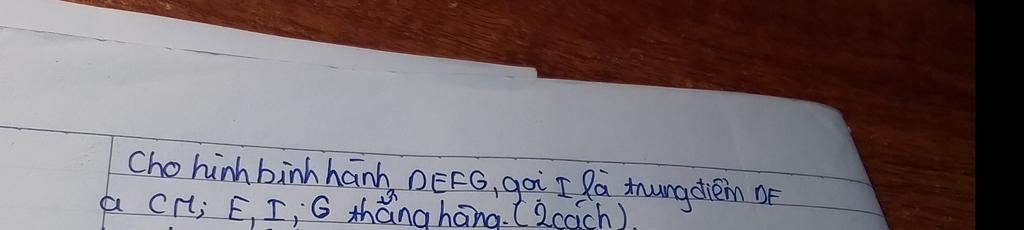 Cho hình bình hành DEFG, gọi I là trung điểm DF
a CM; E, I, G thẳng hàng. (2 cách).